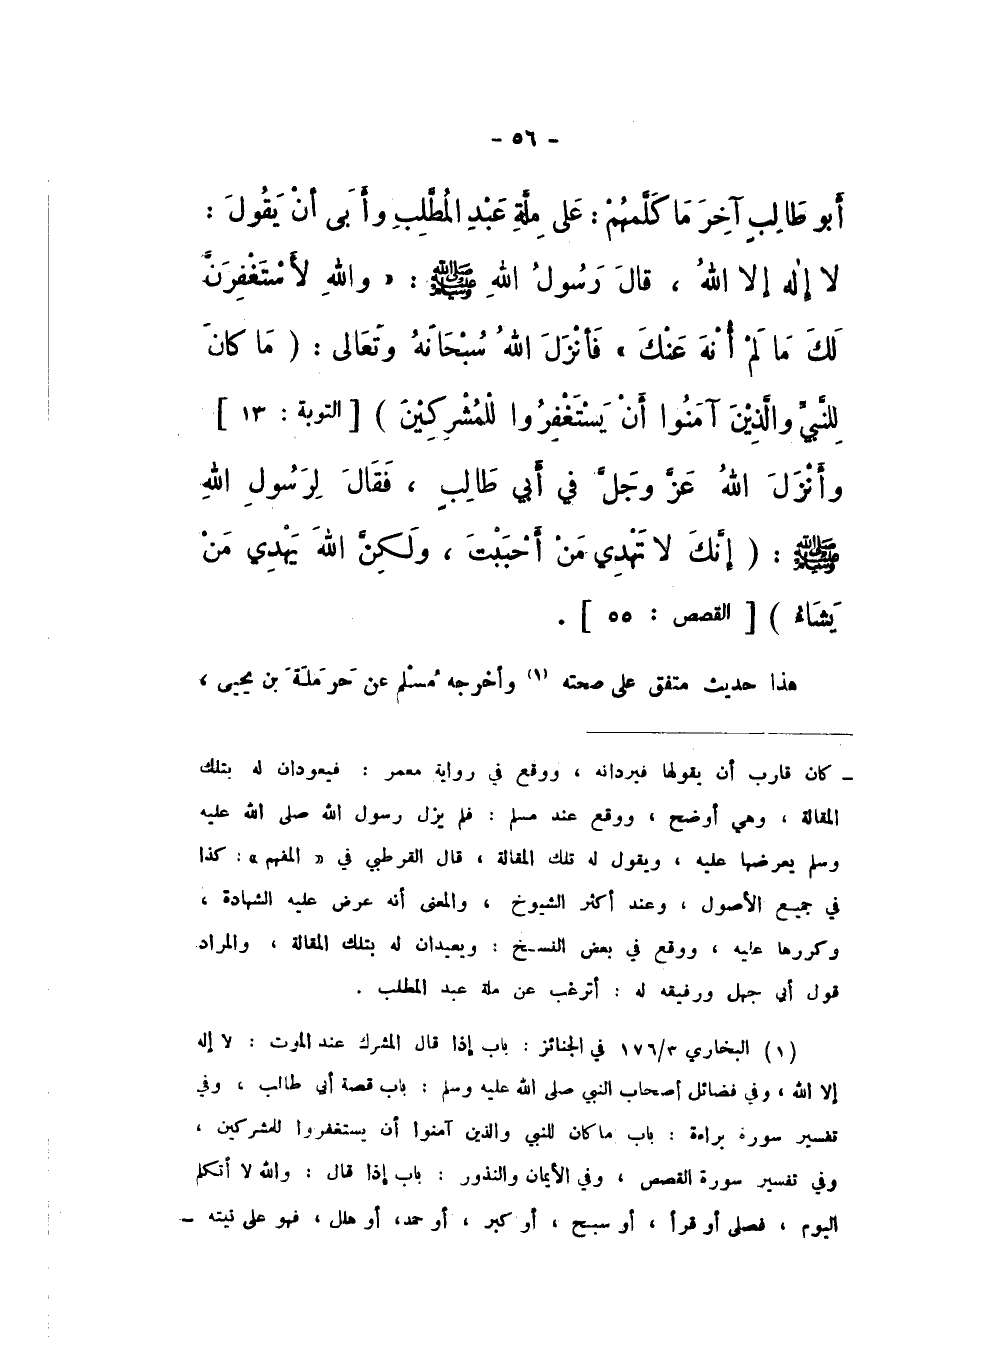 - ٥٦ -
أَبو طَالِبٍ آخِرَ مَا كَلَّمَهُمْ : عَلى مِلَّةِ عَبْدِ المُطَّلِبِ وأَبى أنْ يَقُولَ :
لا إِلٰه إلا اللهُ ، قالَ رَسُولُ اللهِ ﷺ : « واللهِ لأَسْتَغْفِرَنَّ
لَكَ مَا لَمْ أُنْهَ عَنْكَ » فَأَنْزَلَ اللهُ سُبْحَانَهُ وتَعَالى : ( مَا كانَ
لِلنَّبيِّ والَّذِيْنَ آمَنُوا أَنْ يَسْتَغْفِرُوا لِلْمُشْرِكِيْنَ ) [ التوبة : ١٣ ]
وأَنْزَلَ اللهُ عَزَّ وجَلَّ في أَبي طَالِبٍ ، فَقَالَ لِرَسُولِ اللهِ
ﷺ : ( إِنَّكَ لا تَهْدِي مَنْ أَحْبَبْتَ ، ولَكِنَّ اللهَ يَهْدِي مَنْ
يَشَاءُ ) [ القصص : ٥٥ ] .
هذا حديث متفق على صحته (١) وأخرجه مُسْلم عن حَرمَلَةَ بن يحيى ،
ـ كان قارب أن يقولها فيردانه ، ووقع في رواية معمر : فيعودان له بتلك
المقالة ، وهي أوضح ، ووقع عند مسلم : فلم يزل رسول الله صلى الله عليه
وسلم يعرضها عليه ، ويقول له تلك المقالة ، قال القرطبي في « المفهم » : كذا
في جميع الأصول ، وعند أكثر الشيوخ ، والمعنى أنه عرض عليه الشهادة ،
وكررها عليه ، ووقع في بعض النسخ : ويعيدان له بتلك المقالة ، والمراد
قول أبي جهل ورفيقه له : أترغب عن ملة عبد المطلب .
(١) البخاري ١٧٦/٣ في الجنائز : باب إذا قال المشرك عند الموت : لا إله
إلا الله ، وفي فضائل أصحاب النبي صلى الله عليه وسلم : باب قصة أبي طالب ، وفي
تفسير سورة براءة : باب ما كان للنبي والذين آمنوا أن يستغفروا للمشركين ،
وفي تفسير سورة القصص ، وفي الأيمان والنذور : باب إذا قال : والله لا أتكلم
اليوم ، فصلى أو قرأ ، أو سبح ، أو كبر ، أو حمد، أو هلل ، فهو على نيته ـ